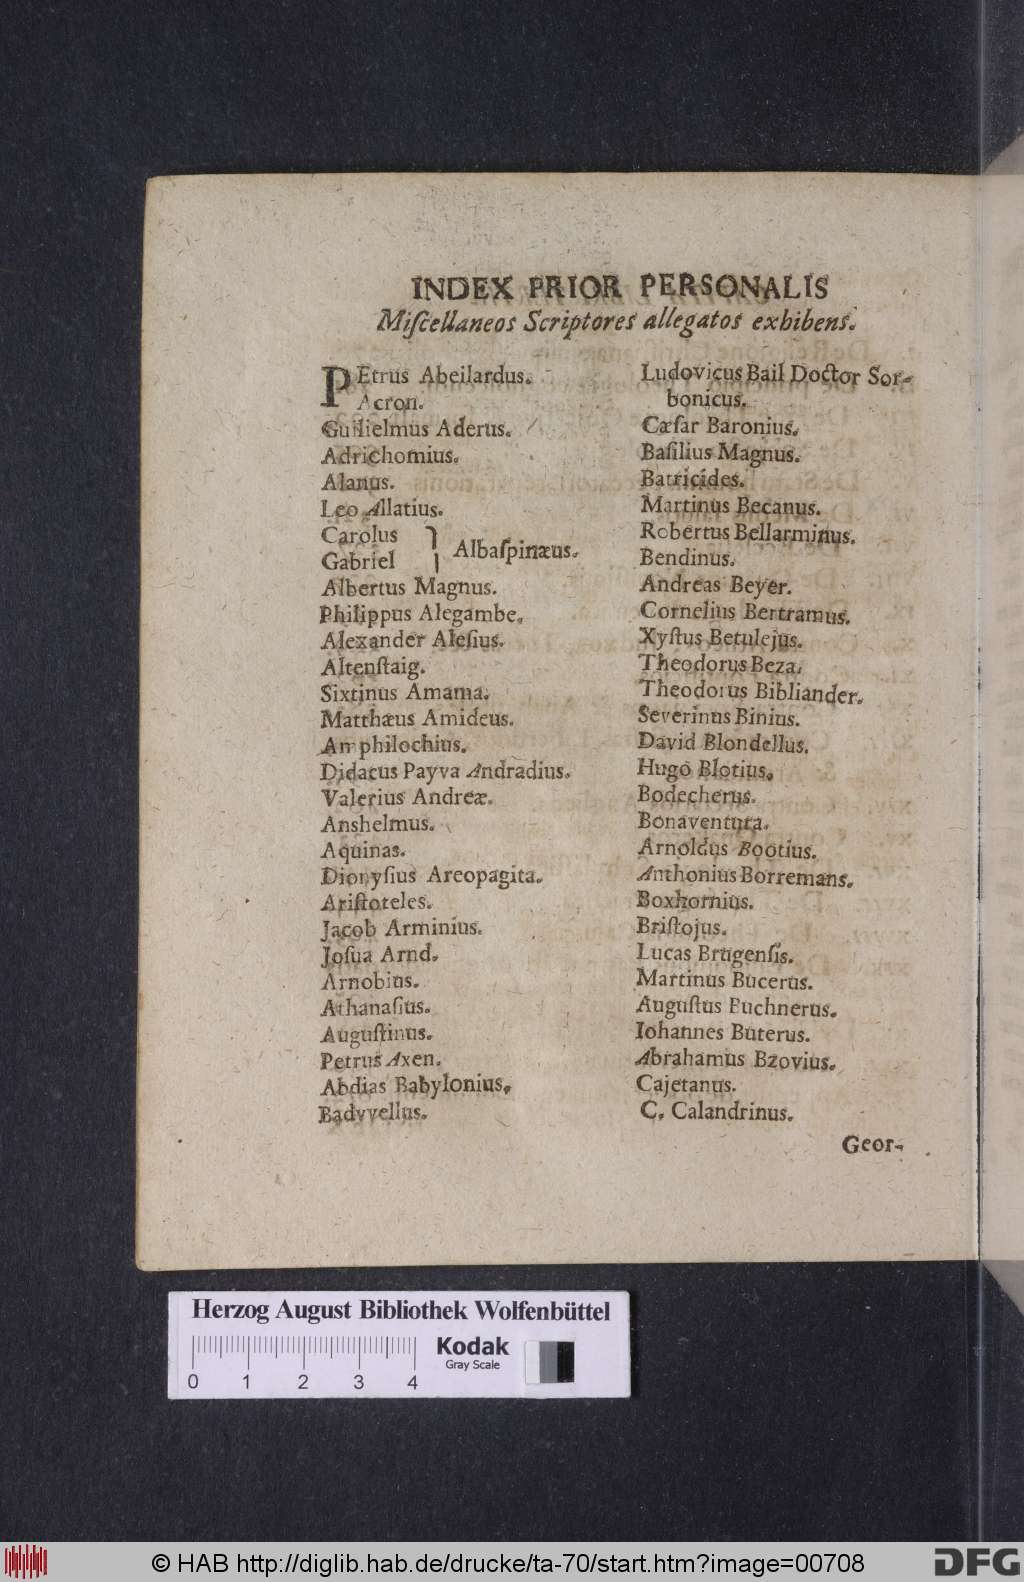 INDEX PRIOR PERSONALIS
Miſcellaneos Scriptores allegatos exhibens.
PEtrus Abeilardus.
Acron.
Guilielmus Aderus.
Adrichomius.
Alanus.
Leo Allatius.
Carolus
Gabriel } Albaſpinæus.
Albertus Magnus.
Philippus Alegambe.
Alexander Aleſius.
Altenſtaig.
Sixtinus Amama.
Matthæus Amideus.
Amphilochius.
Didacus Payva Andradius.
Valerius Andreæ.
Anshelmus.
Aquinas.
Dionyſius Areopagita.
Ariſtoteles.
Jacob Arminius.
Joſua Arnd.
Arnobius.
Athanaſius.
Auguſtinus.
Petrus Axen.
Abdias Babylonius.
Badvvellus.
Ludovicus Bail Doctor Sor-
bonicus.
Cæſar Baronius.
Baſilius Magnus.
Batricides.
Martinus Becanus.
Robertus Bellarminus.
Bendinus.
Andreas Beyer.
Cornelius Bertramus.
Xyſtus Betulejus.
Theodorus Beza.
Theodorus Bibliander.
Severinus Binius.
David Blondellus.
Hugo Blotius.
Bodecherus.
Bonaventura.
Arnoldus Bootius.
Anthonius Borremans.
Boxhornius.
Briſtojus.
Lucas Brugenſis.
Martinus Bucerus.
Auguſtus Buchnerus.
Iohannes Buterus.
Abrahamus Bzovius.
Cajetanus.
C. Calandrinus.
Geor-
Herzog August Bibliothek Wolfenbüttel
Kodak
Gray Scale
0 1 2 3 4
© HAB http://diglib.hab.de/drucke/ta-70/start.htm?image=00708
DFG